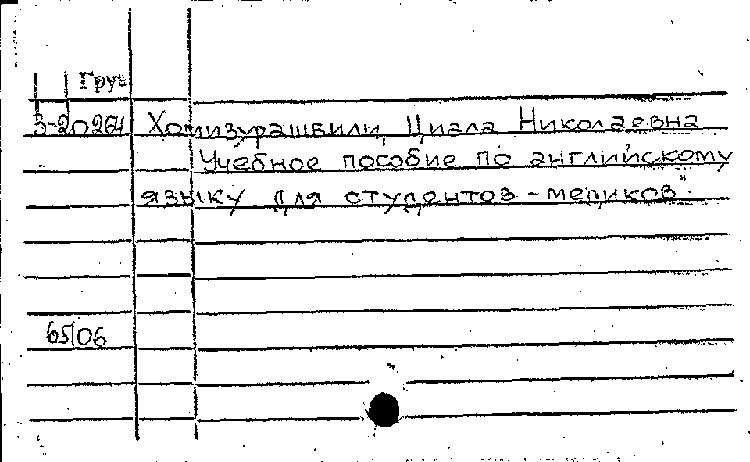 Груз
3-20264 Хомизурашвили, Циала Николаевна
Учебное пособие по английскому
языку для студентов-медиков.
65/06